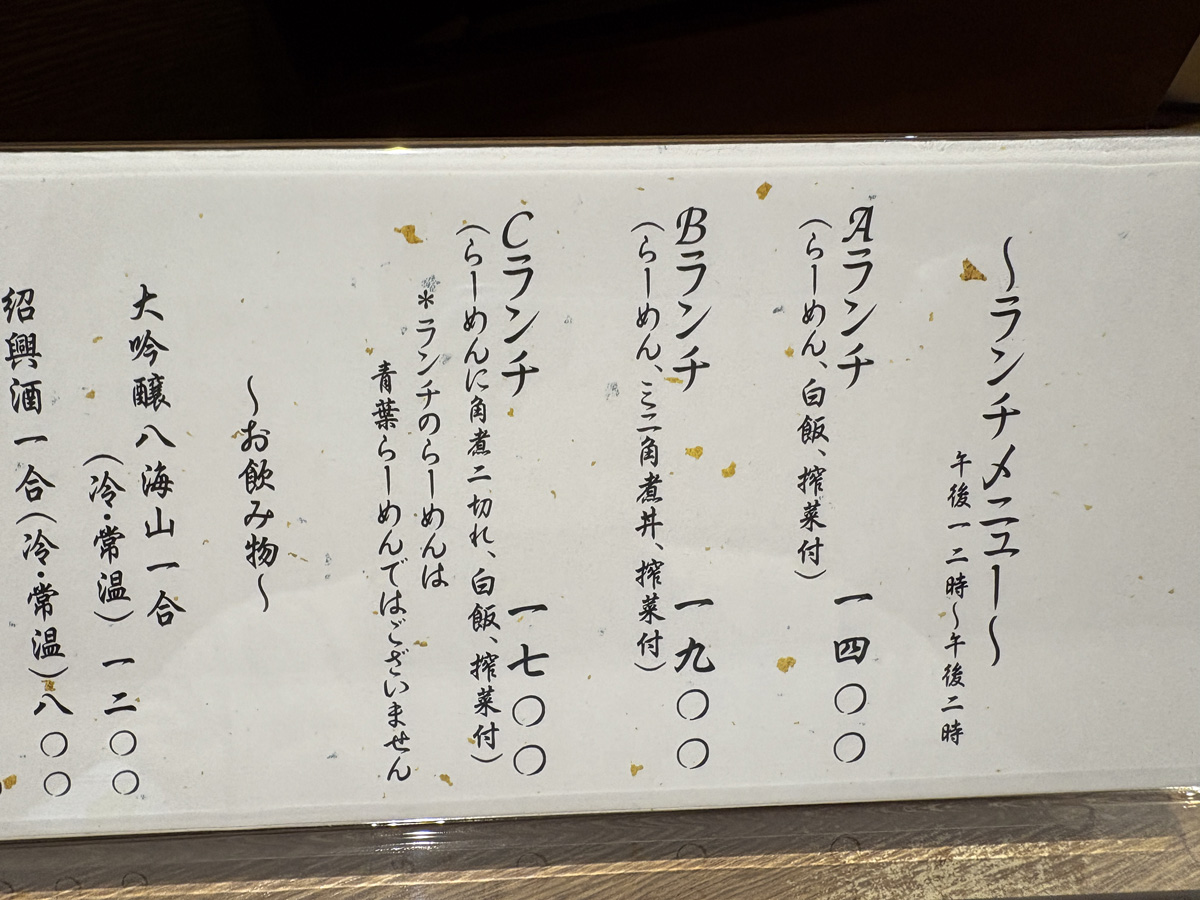 ～ランチメニュー～
午後一二時～午後二時
Aランチ 一四〇〇
(らーめん、白飯、搾菜付)
Bランチ 一九〇〇
(らーめん、ミニ角煮丼、搾菜付)
Cランチ 一七〇〇
(らーめんに角煮二切れ、白飯、搾菜付)
*ランチのらーめんは
青葉らーめんではございません
～お飲み物～
大吟醸八海山一合
(冷・常温) 一二〇〇
紹興酒一合(冷・常温)八〇〇